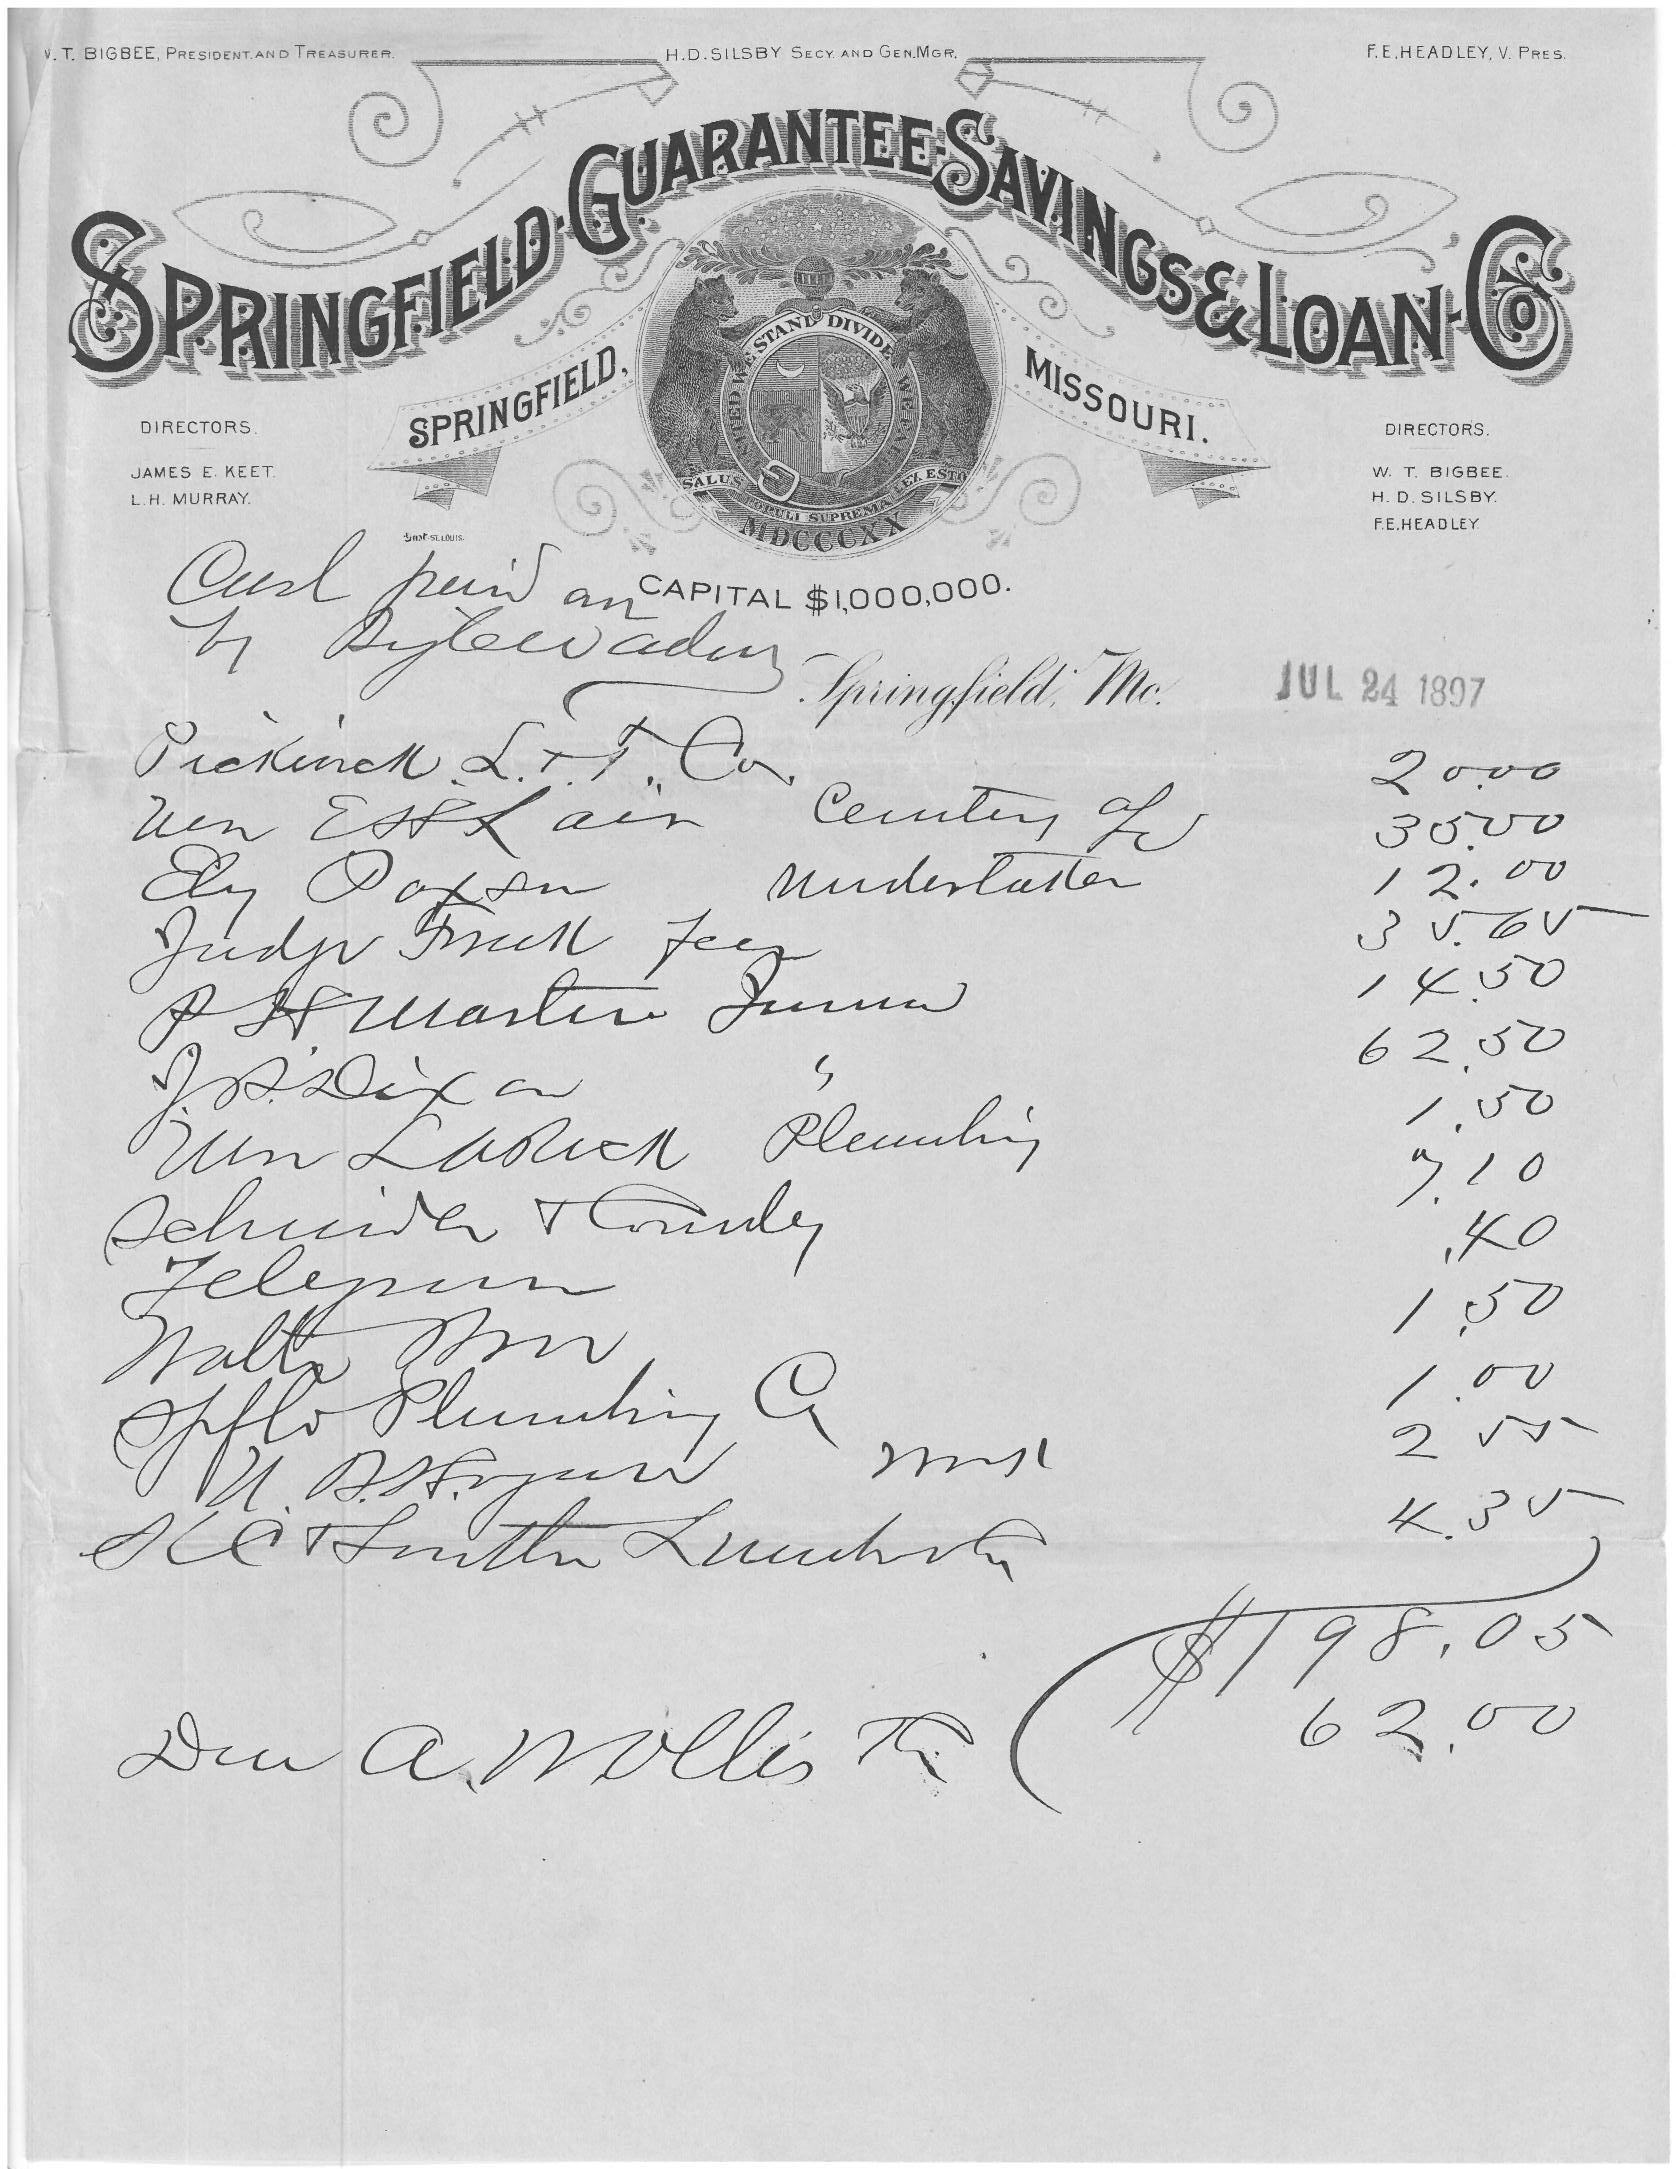 W. T. BIGBEE, PRESIDENT. AND TREASURER.
H. D. SILSBY SECY. AND GEN. MGR.
F. E. HEADLEY, V. PRES.
SPRINGFIELD-GUARANTEE-SAVINGS & LOAN-CO
SPRINGFIELD, MISSOURI.
UNITED WE STAND DIVIDED WE FALL
SALUS POPULI SUPREMA LEX ESTO
MDCCCXX
DIRECTORS.
JAMES E. KEET.
L. H. MURRAY.
DIRECTORS.
W. T. BIGBEE.
H. D. SILSBY.
F. E. HEADLEY
ST. LOUIS.
CAPITAL $1,000,000.
Cash paid
by
Springfield, Mo. JUL 24 1897
L. & T. Co. 20.00
35.00
Ely Paxson Undertaker 12.00
Judge Fees 35.65
Martin 14.50
Dixon " 62.50
Wm Plumbing 1.50
Schneider & 7.10
Telegram .40
Walter 1.50
Spfld Plumbing Co 1.00
work 2 55
K C & Southern Lumber Co 4.35
$198.05
Due A. 62.00